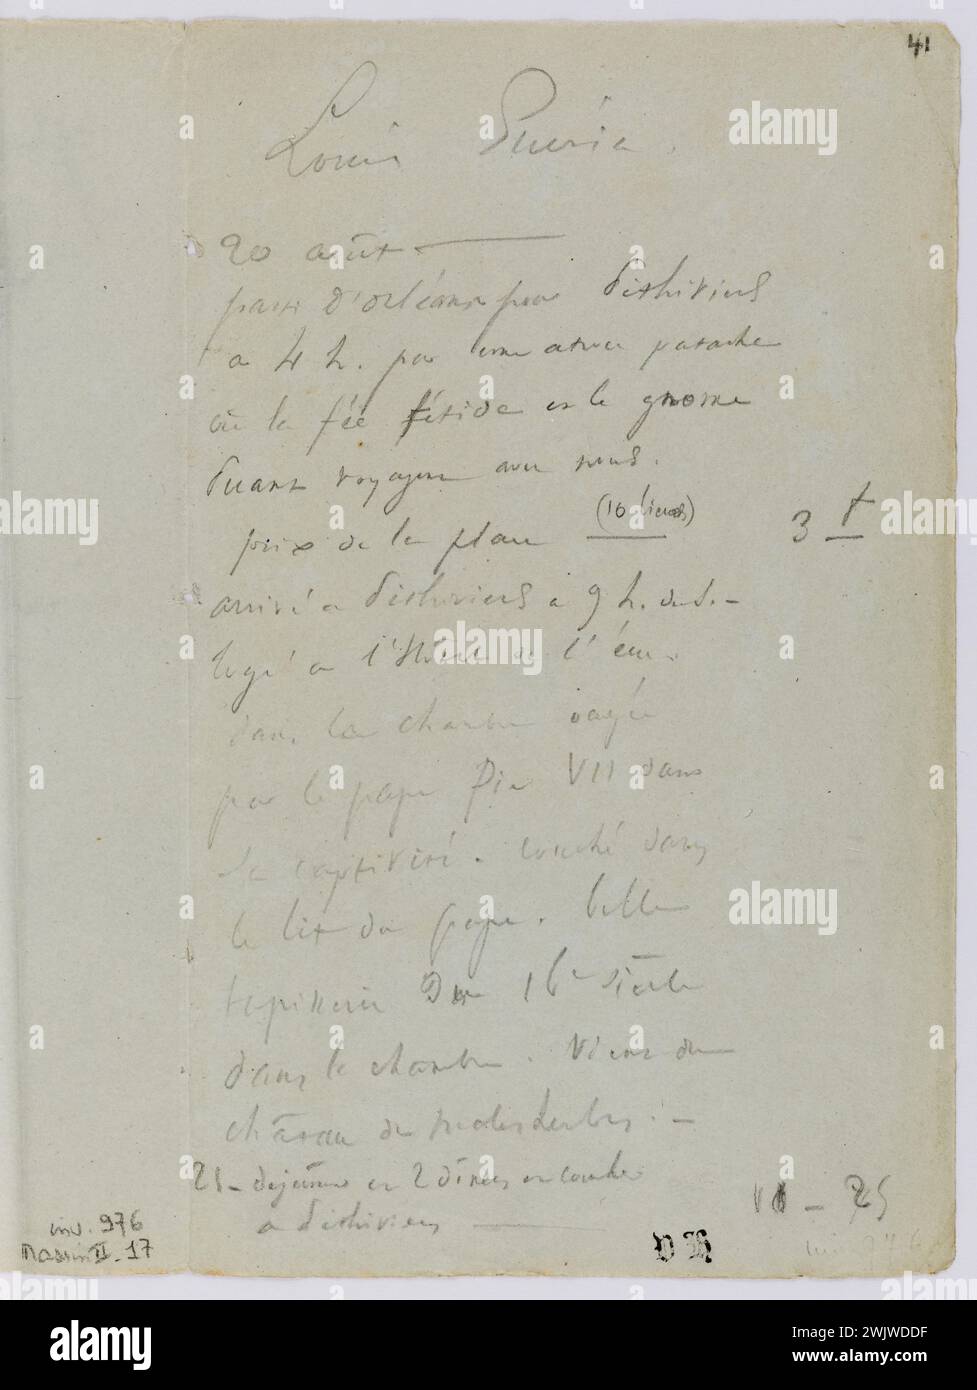 41
Louis
20 août
parti d'orléans pour Pithiviers
a 4 h. par une atroce patache
où la fée fétide et le gnome
puant voyagent avec nous.
prix de la place (10 lieues) 3 f
arrivé a Pithiviers a 9 h. du s. -
logé a l'hôtel de l'écu.
dans la chambre
par le pape Pie VII dans
sa captivité. couché dans
le lit du pape. belle
tapisserie du 16e siècle
dans la chambre. vient du
château de malesherbes. -
21 - dejeûner et 2 dîners et couchée
a Pithiviers 16 - 25
inv. 976
Massin II. 17
VH
alamy
Image ID: 2WJWDDF
www.alamy.com